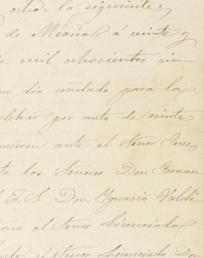 acta, la siguiente:
de México a veinte y
mil ochocientos cin
dia señalado para la
celebrar por auto de veinte
ante el Señor Juez
los Señores Don Fernan
E. S. Don Ygnacio Valdi
el Señor Licenciado
el Señor Licenciado Don